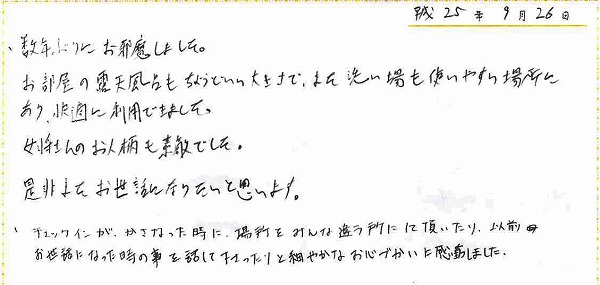 平成 25 年 9 月 26 日
、数年ぶりにお邪魔しました。
お部屋の露天風呂もちょうどいい大きさで、また洗い場も使いやすい場所に
あり、快適に利用できました。
女将さんのお人柄も素敵でした。
是非またお世話になりたいと思います。
、チェックインが、かさなった時に、場所をみんな違う所にして頂いたり、以前
お世話になった時の事を話して下さったりと細やかなお心づかいに感動しました。